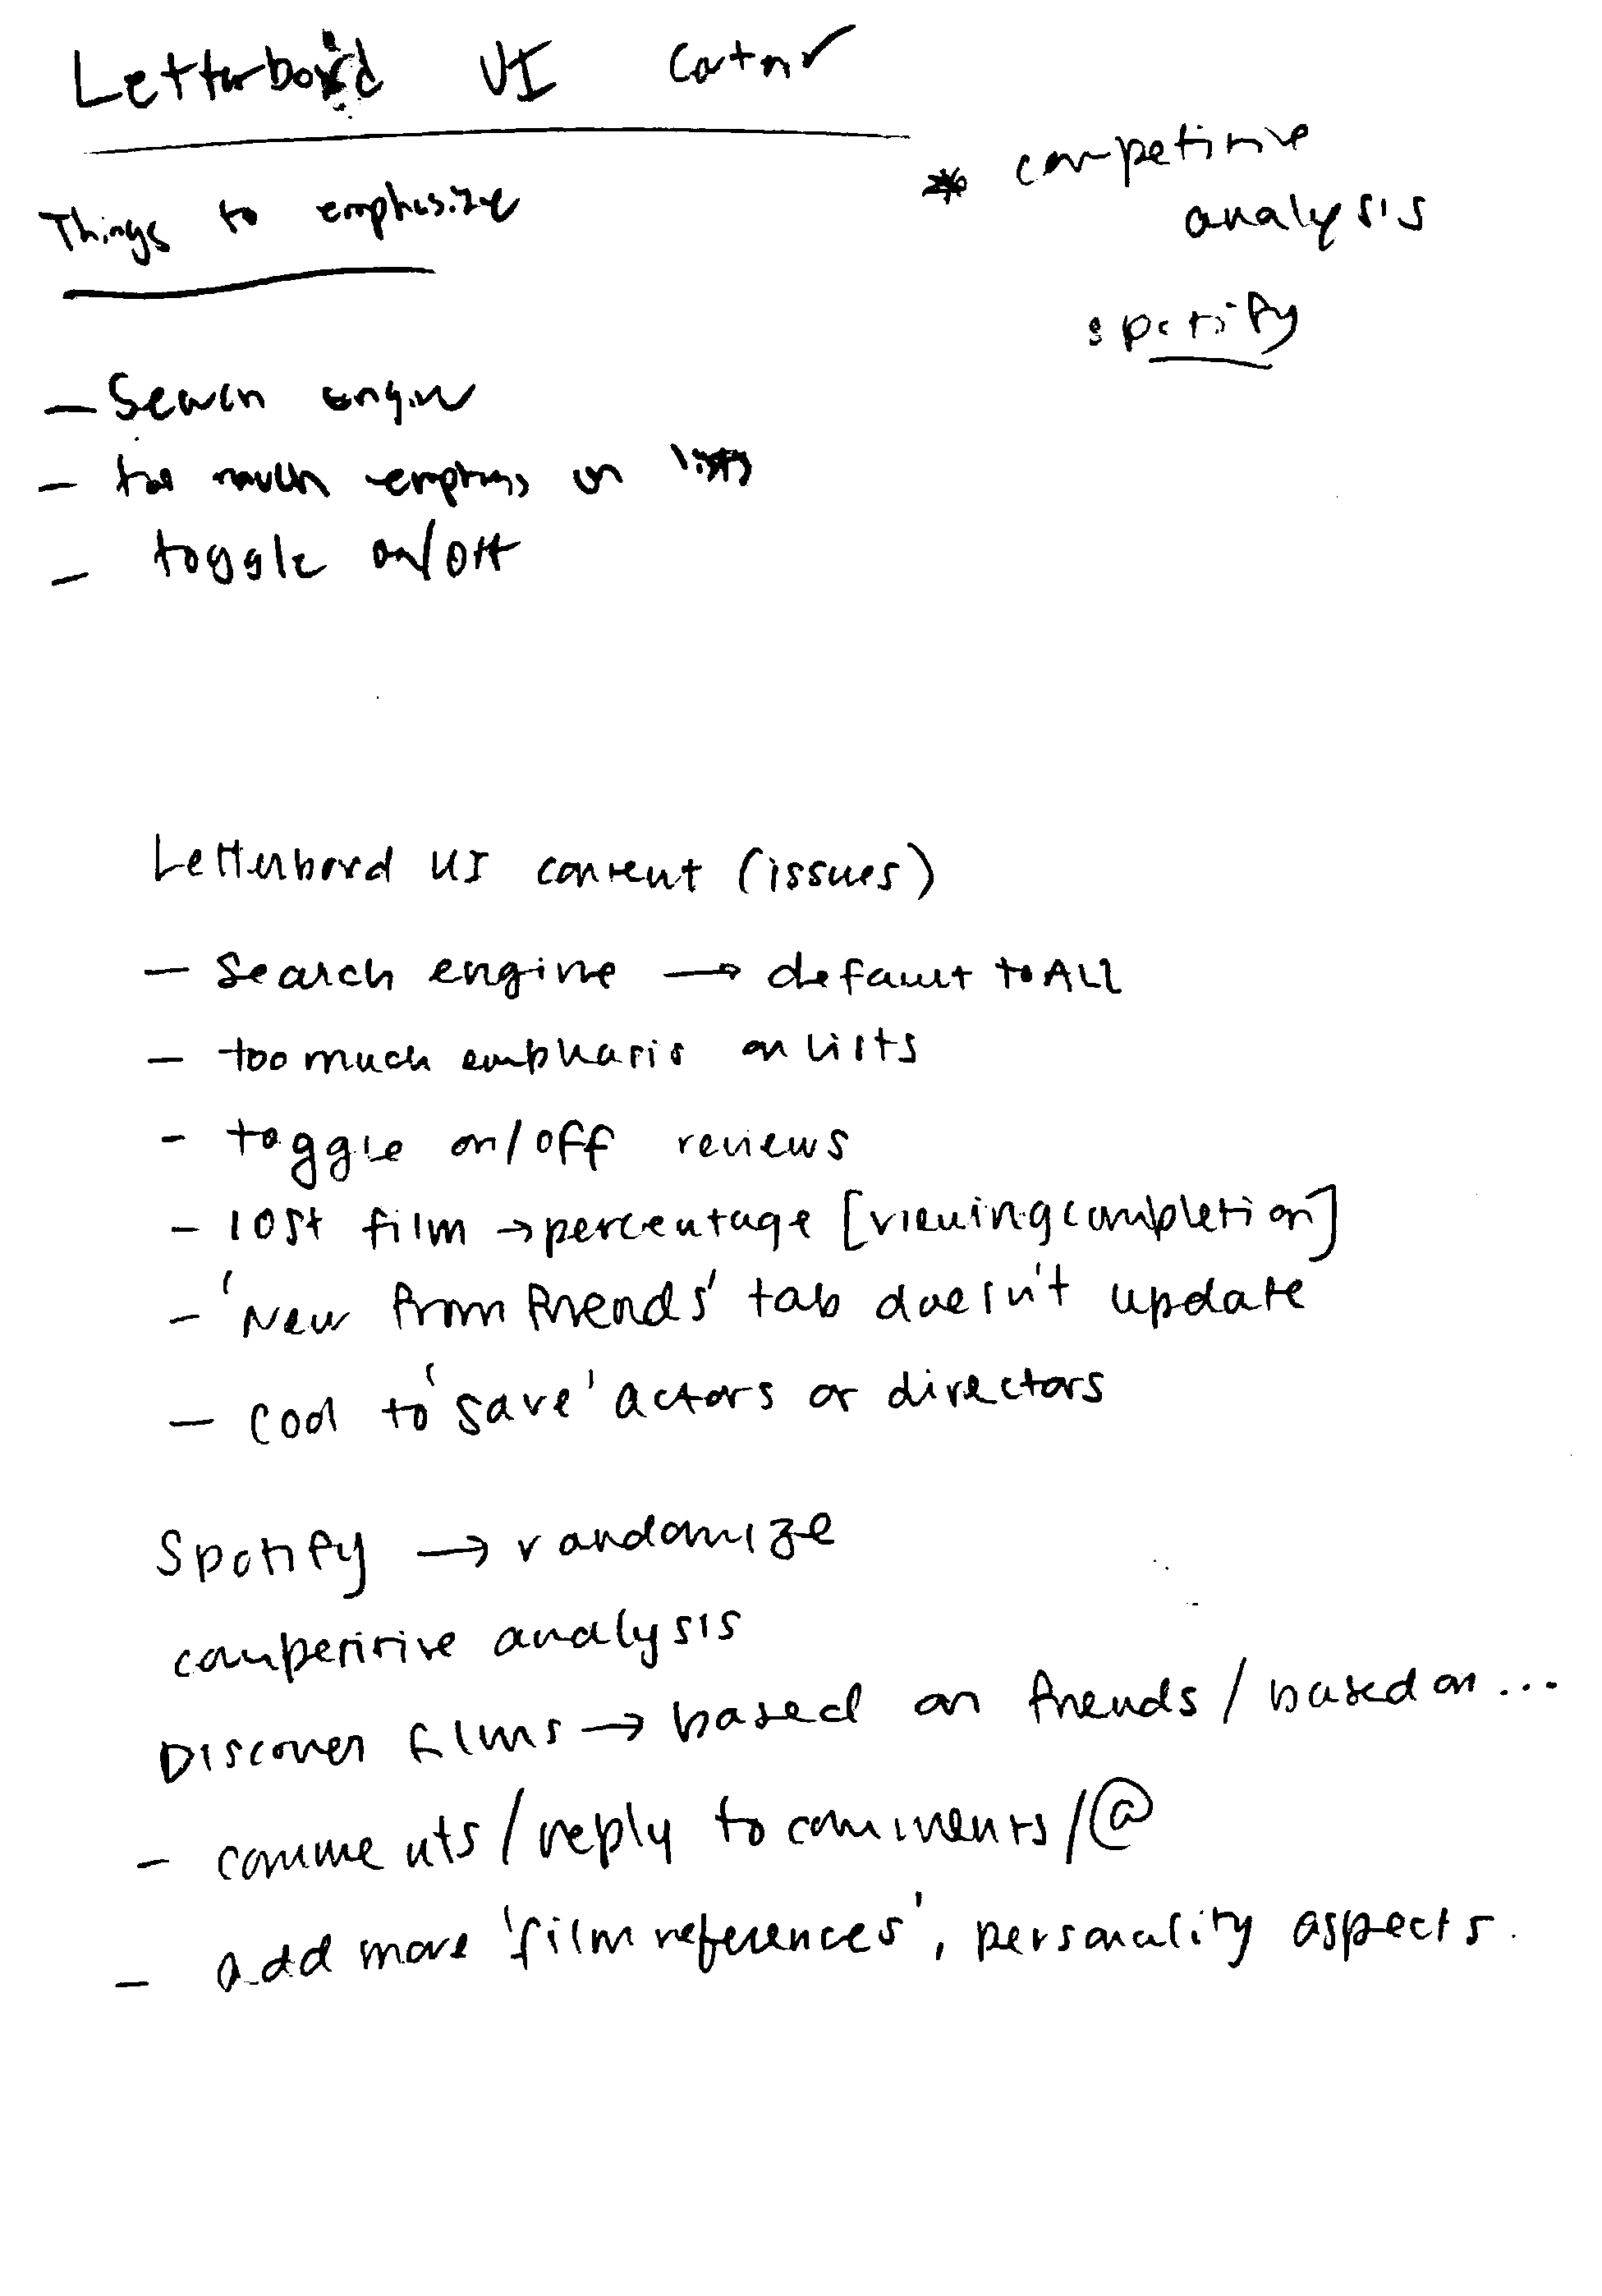 Letterboxd UI Content
Things to emphasize
* competitive
analysis
spotify
- Search engine
- too much emphasis on lists
- toggle on/off
Letterboxd UI content (issues)
- Search engine → default to ALL
- too much emphasis on lists
- toggle on/off reviews
- lost film → percentage [viewing completion]
- 'New from friends' tab doesn't update
- cool to 'save' actors or directors
Spotify → randomize
competitive analysis
Discover films → based on friends / based on ...
- comments / reply to comments / @
- add more 'film references', personality aspects.